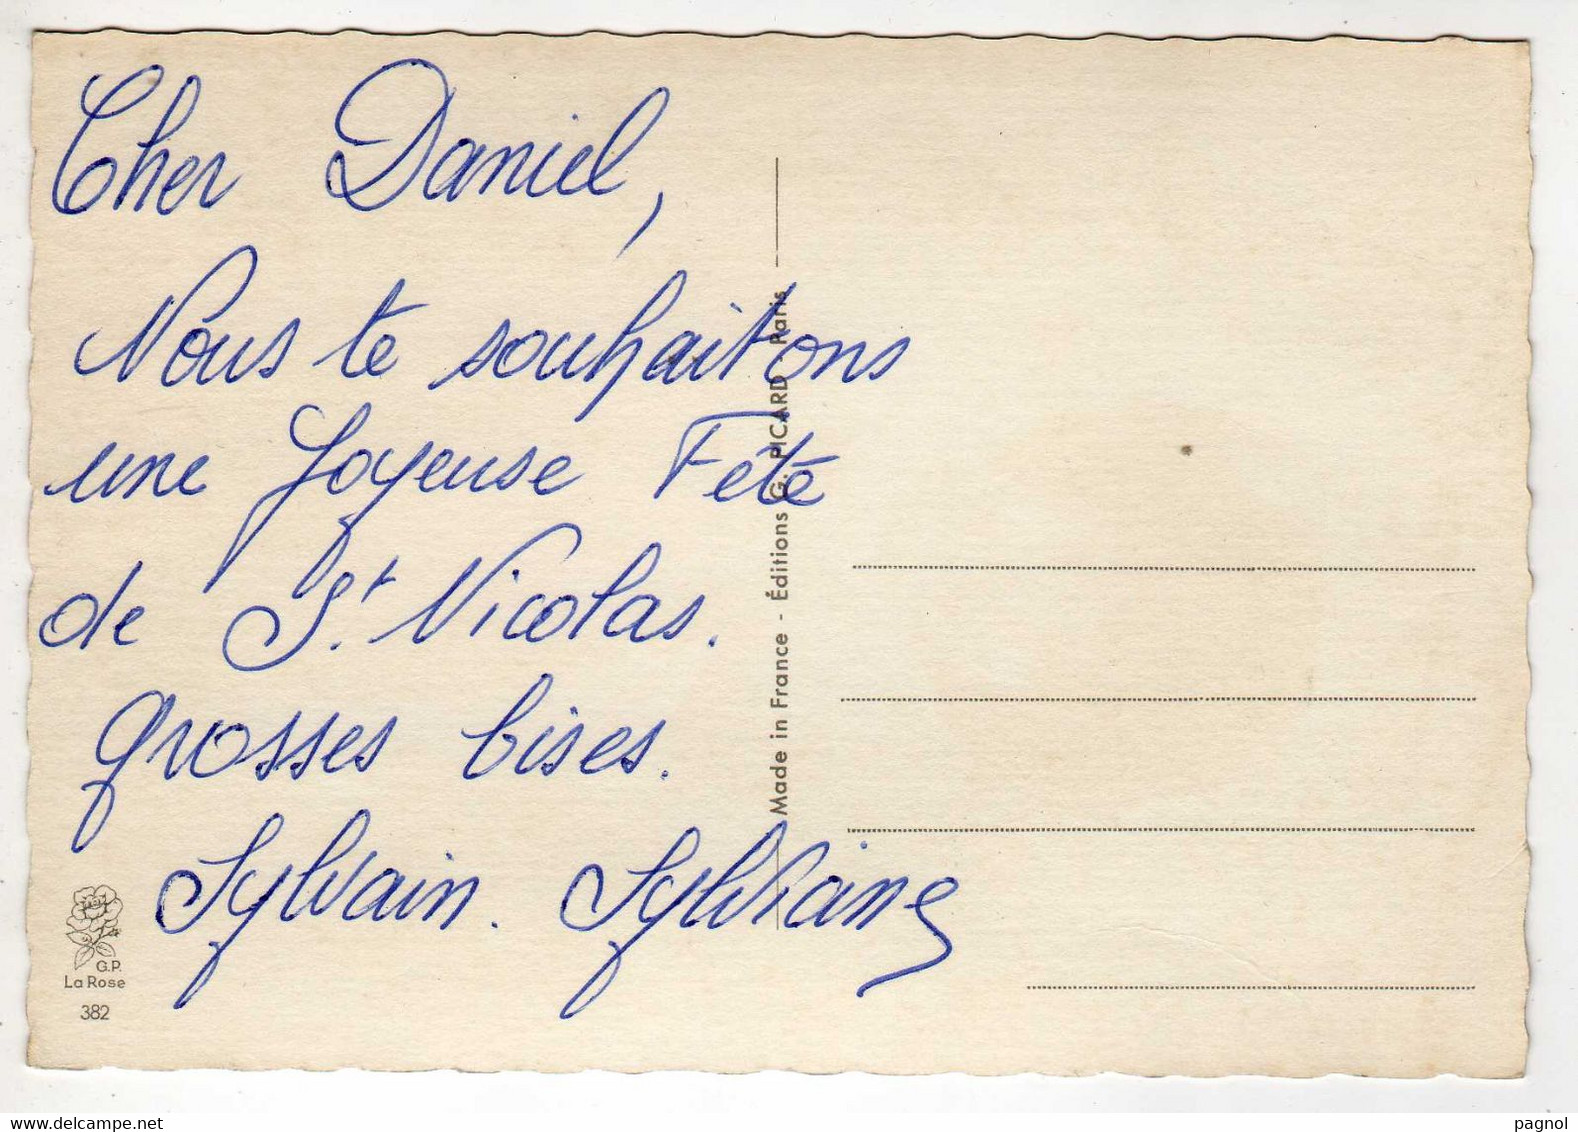 Cher Daniel,
Nous te souhaitons
une Joyeuse Fête
de St. Nicolas.
grosses bises.
Sylvain. Sylviane
Made in France - Éditions G. PICARD Paris
G.P.
La Rose
382
www.delcampe.net
pagnol